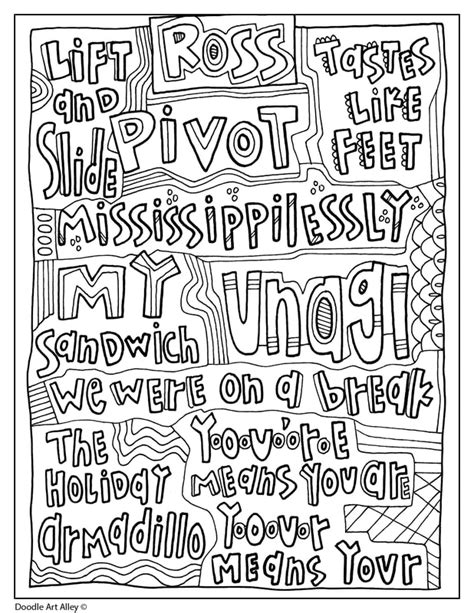 Ross
Lift
and
Slide
Pivot
Tastes
Like
Feet
Mississippilessly
My
Sandwich
Unagi
We were on a break
The
Holiday
Armadillo
Y.o.u.'r.e
Means you are
Y.o.u.r
Means Your
Doodle Art Alley ©